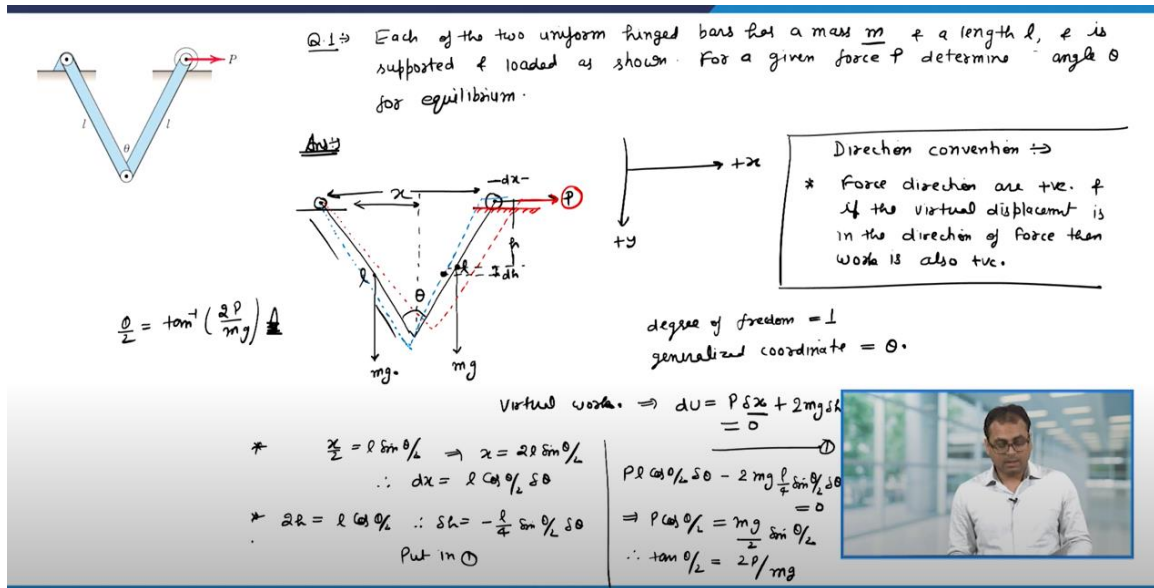 Q.1 ⇒ Each of the two uniform hinged bars has a mass m & a length l, & is
supported & loaded as shown. For a given force P determine angle θ
for equilibrium.
P
l
l
θ
Ans ⇒
x
-dx-
P
h
dh
l
l
θ
mg.
mg
+x
+y
Direction convention ⇒
* Force direction are +ve. &
if the virtual displacemt is
in the direction of force then
work is also +ve.
θ/2 = tan⁻¹ (2P/mg)
degree of freedom = 1
generalized coordinate = θ.
Virtual work. ⇒ dU = Pδx + 2mgδh
= 0
①
* x/2 = l sin θ/2 ⇒ x = 2l sin θ/2
∴ dx = l cos θ/2 δθ
* 2h = l cos θ/2 ∴ δh = -l/4 sin θ/2 δθ
Put in ①
Pl cos θ/2 δθ - 2mg l/4 sin θ/2 δθ
= 0
⇒ P cos θ/2 = mg/2 sin θ/2
∴ tan θ/2 = 2P/mg